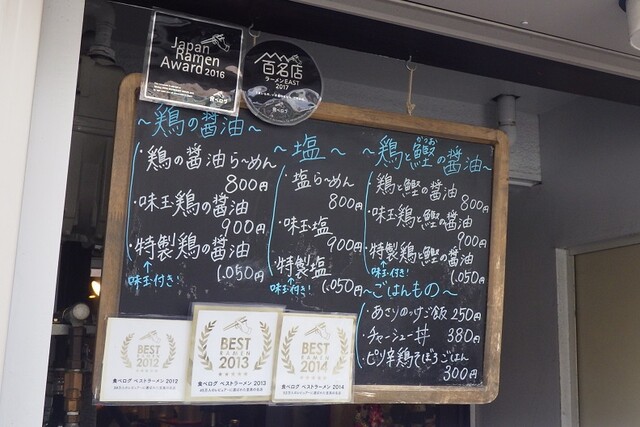 Japan
Ramen
Award 2016
食べログ
百名店
ラーメンEAST
2017
食べログ
～鶏の醤油～
・鶏の醤油らーめん
800円
・味玉鶏の醤油
900円
・特製鶏の醤油
↑
味玉付き!
1,050円
～塩～
・塩らーめん
800円
・味玉塩
900円
・特製塩
↑
味玉付き!
1,050円
かつお
～鶏と鰹の醤油～
・鶏と鰹の醤油
800円
・味玉鶏と鰹の醤油
900円
・特製鶏と鰹の醤油
↑
味玉付き!
1,050円
～ごはんもの～
・あさりのっけご飯 250円
・チャーシュー丼 380円
・ピリ辛鶏そぼろごはん
300円
BEST
RAMEN
2012
食べログ ベストラーメン 2012
BEST
RAMEN
2013
食べログ ベストラーメン 2013
BEST
RAMEN
2014
食べログ ベストラーメン 2014